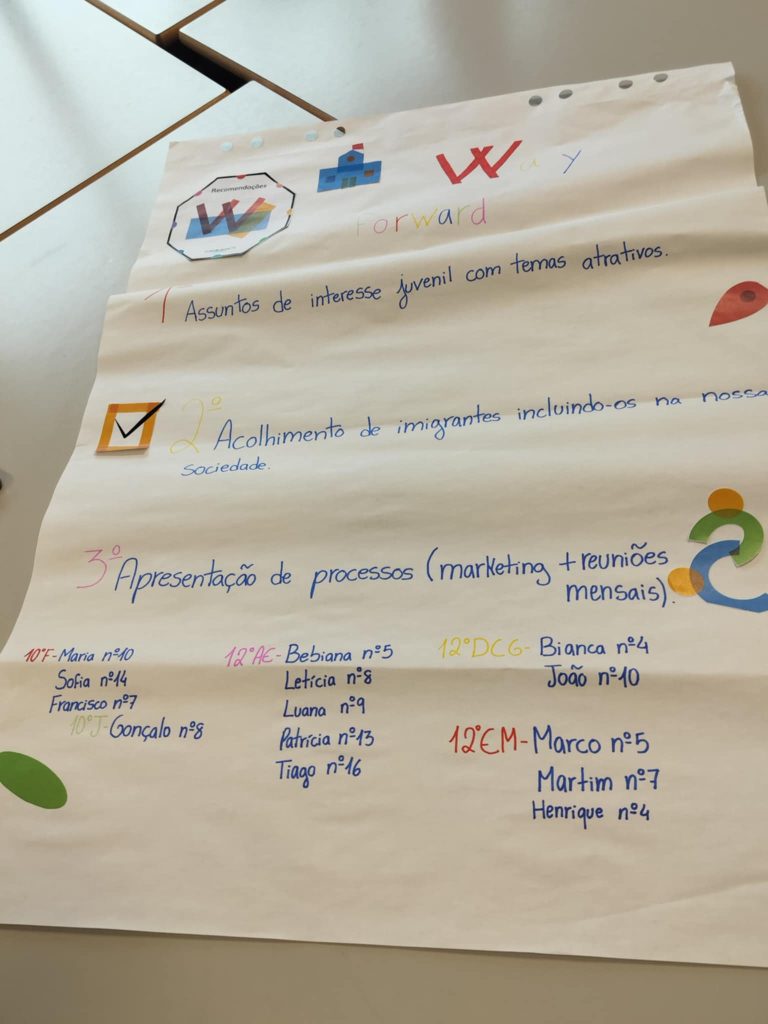 Recomendações
W
Way
Forward
1 Assuntos de interesse juvenil com temas atrativos.
2º Acolhimento de imigrantes incluindo-os na nossa
sociedade.
3º Apresentação de processos (marketing + reuniões
mensais).
10ºF- Maria nº10
Sofia nº14
Francisco nº7
10ºJ- Gonçalo nº8
12ºAE- Bebiana nº5
Letícia nº8
Luana nº9
Patrícia nº13
Tiago nº16
12ºDCG- Bianca nº4
João nº10
12ºEM- Marco nº5
Martim nº7
Henrique nº4